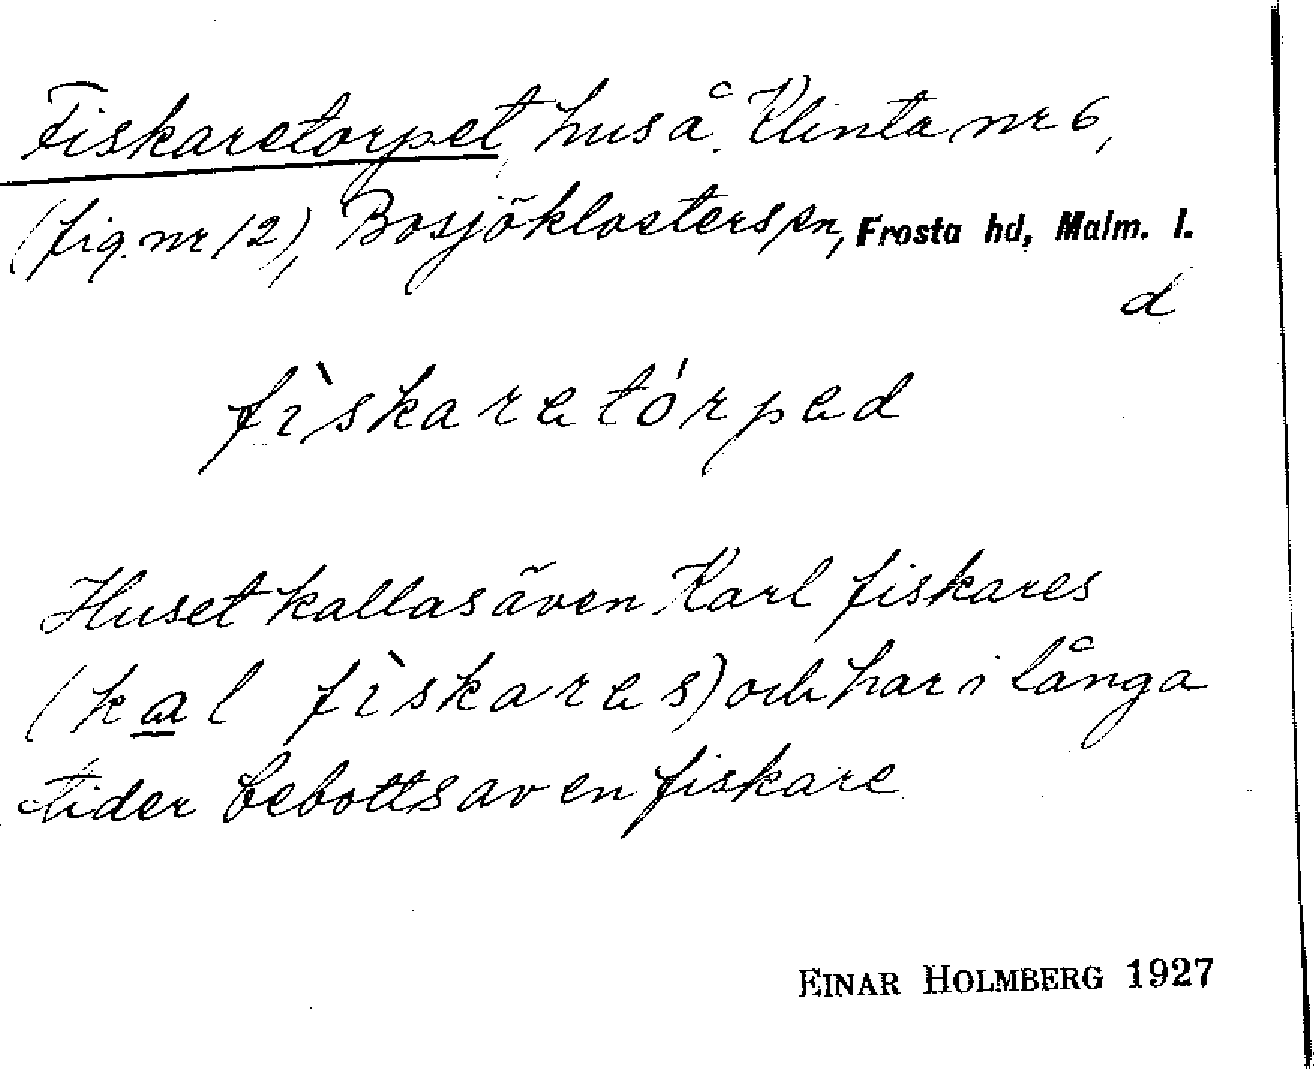 Fiskaretorpet, hus å Klinta nr 6,
(fig. nr 12), Bosjökloster sn, Frosta hd, Malm. l.
d
fìskaretórped
Huset kallas även Karl fiskares
(kal fìskares) och har i långa
tider bebotts av en fiskare
EINAR HOLMBERG 1927